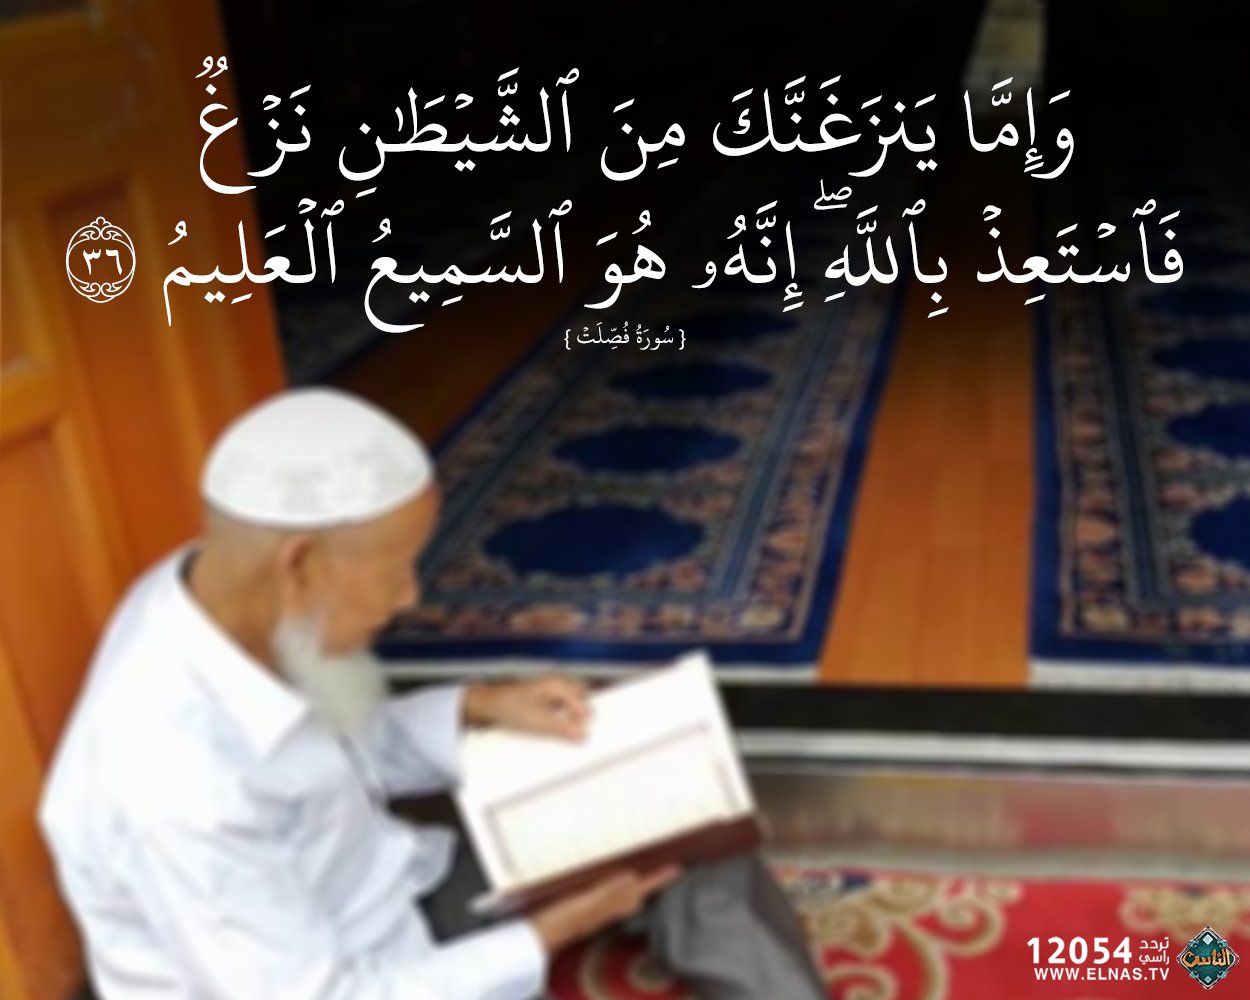 وَإِمَّا يَنزَغَنَّكَ مِنَ ٱلشَّيْطَٰنِ نَزْغٌ
فَٱسْتَعِذْ بِٱللَّهِ ۖ إِنَّهُۥ هُوَ ٱلسَّمِيعُ ٱلْعَلِيمُ ٣٦
{ سُورَةُ فُصِّلَتْ }
تردد راسي 12054
WWW.ELNAS.TV
الناس